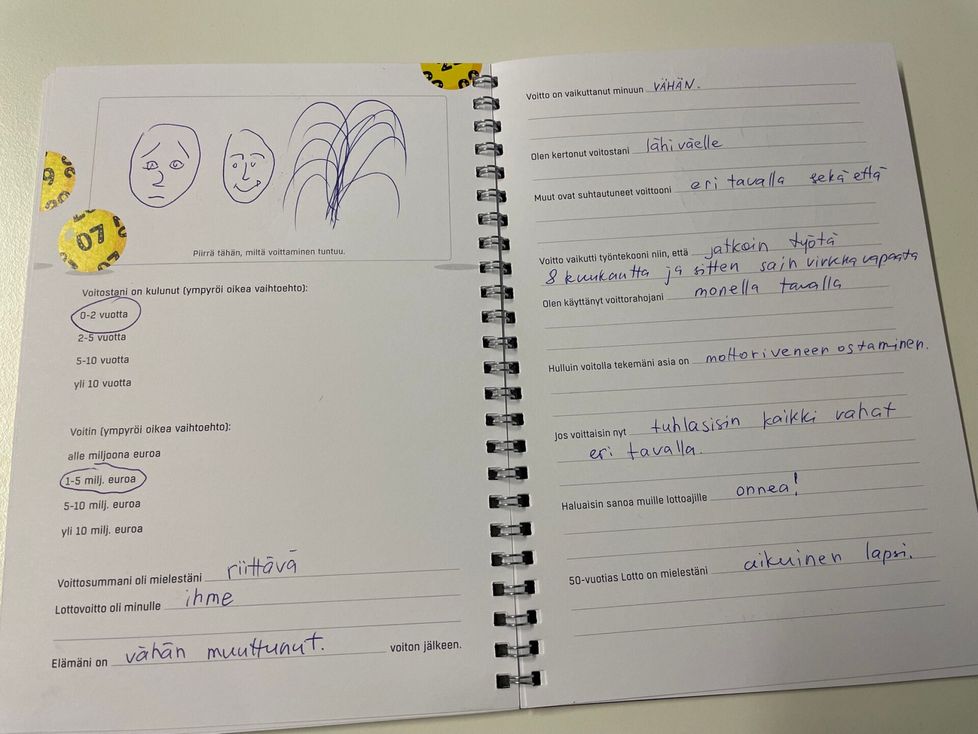 07
Piirrä tähän, miltä voittaminen tuntuu.
Voitostani on kulunut (ympyröi oikea vaihtoehto):
0-2 vuotta
2-5 vuotta
5-10 vuotta
yli 10 vuotta
Voitin (ympyröi oikea vaihtoehto):
alle miljoona euroa
1-5 milj. euroa
5-10 milj. euroa
yli 10 milj. euroa
Voittosummani oli mielestäni riittävä
Lottovoitto oli minulle ihme
Elämäni on vähän muuttunut. voiton jälkeen.
Voitto on vaikuttanut minuun VÄHÄN.
Olen kertonut voitostani lähiväelle
Muut ovat suhtautuneet voittooni eri tavalla sekä että
Voitto vaikutti työntekooni niin, että jatkoin työtä
8 kuukautta ja sitten sain virkavapaata
Olen käyttänyt voittorahojani monella tavalla
Hulluin voitolla tekemäni asia on mottoriveneen ostaminen.
Jos voittaisin nyt tuhlasisin kaikki rahat
eri tavalla.
Haluaisin sanoa muille lottoajille onnea!
50-vuotias Lotto on mielestäni aikuinen lapsi.